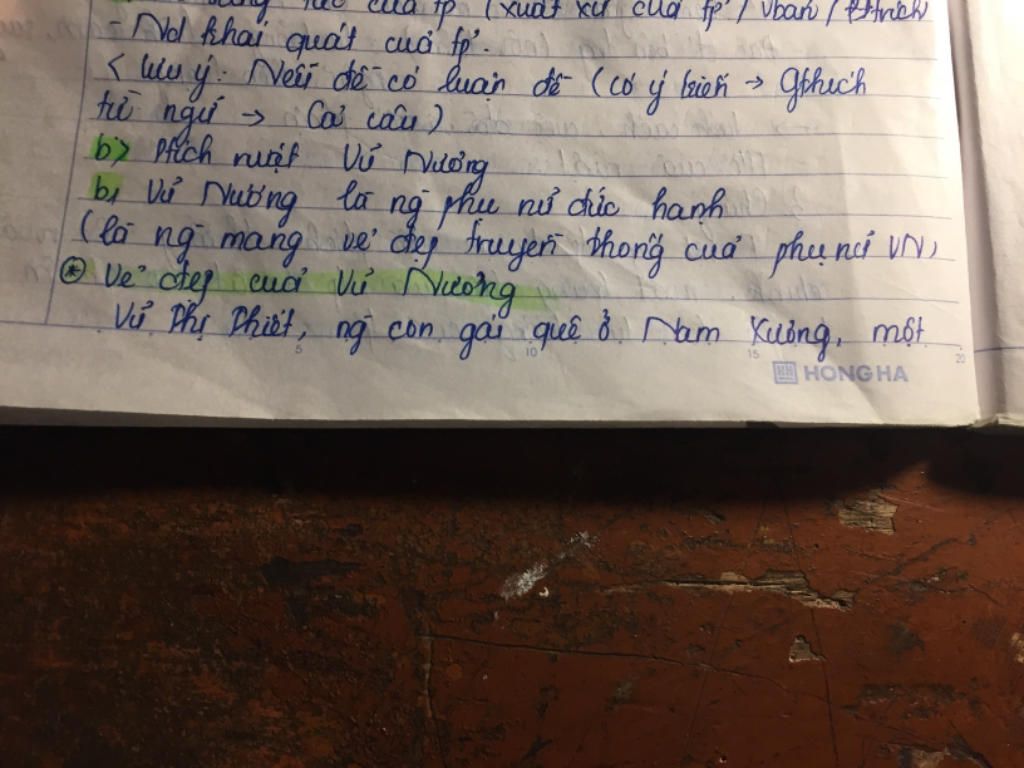 tác của tp (xuất xứ của tp / vban / đtrích
- Nd khái quát của tp.
< Lưu ý. Nếu đề có luận đề (có ý kiến → Gthích
từ ngữ → Cả câu)
b) Ptích nvật Vũ Nương
b, Vũ Nương là ng phụ nữ đức hạnh
(là ng mang vẻ đẹp truyền thống của phụ nữ VN)
* Vẻ đẹp của Vũ Nương
Vũ Thị Thiết, ng con gái quê ở Nam Xương, một
5 10 15 20
HONG HA